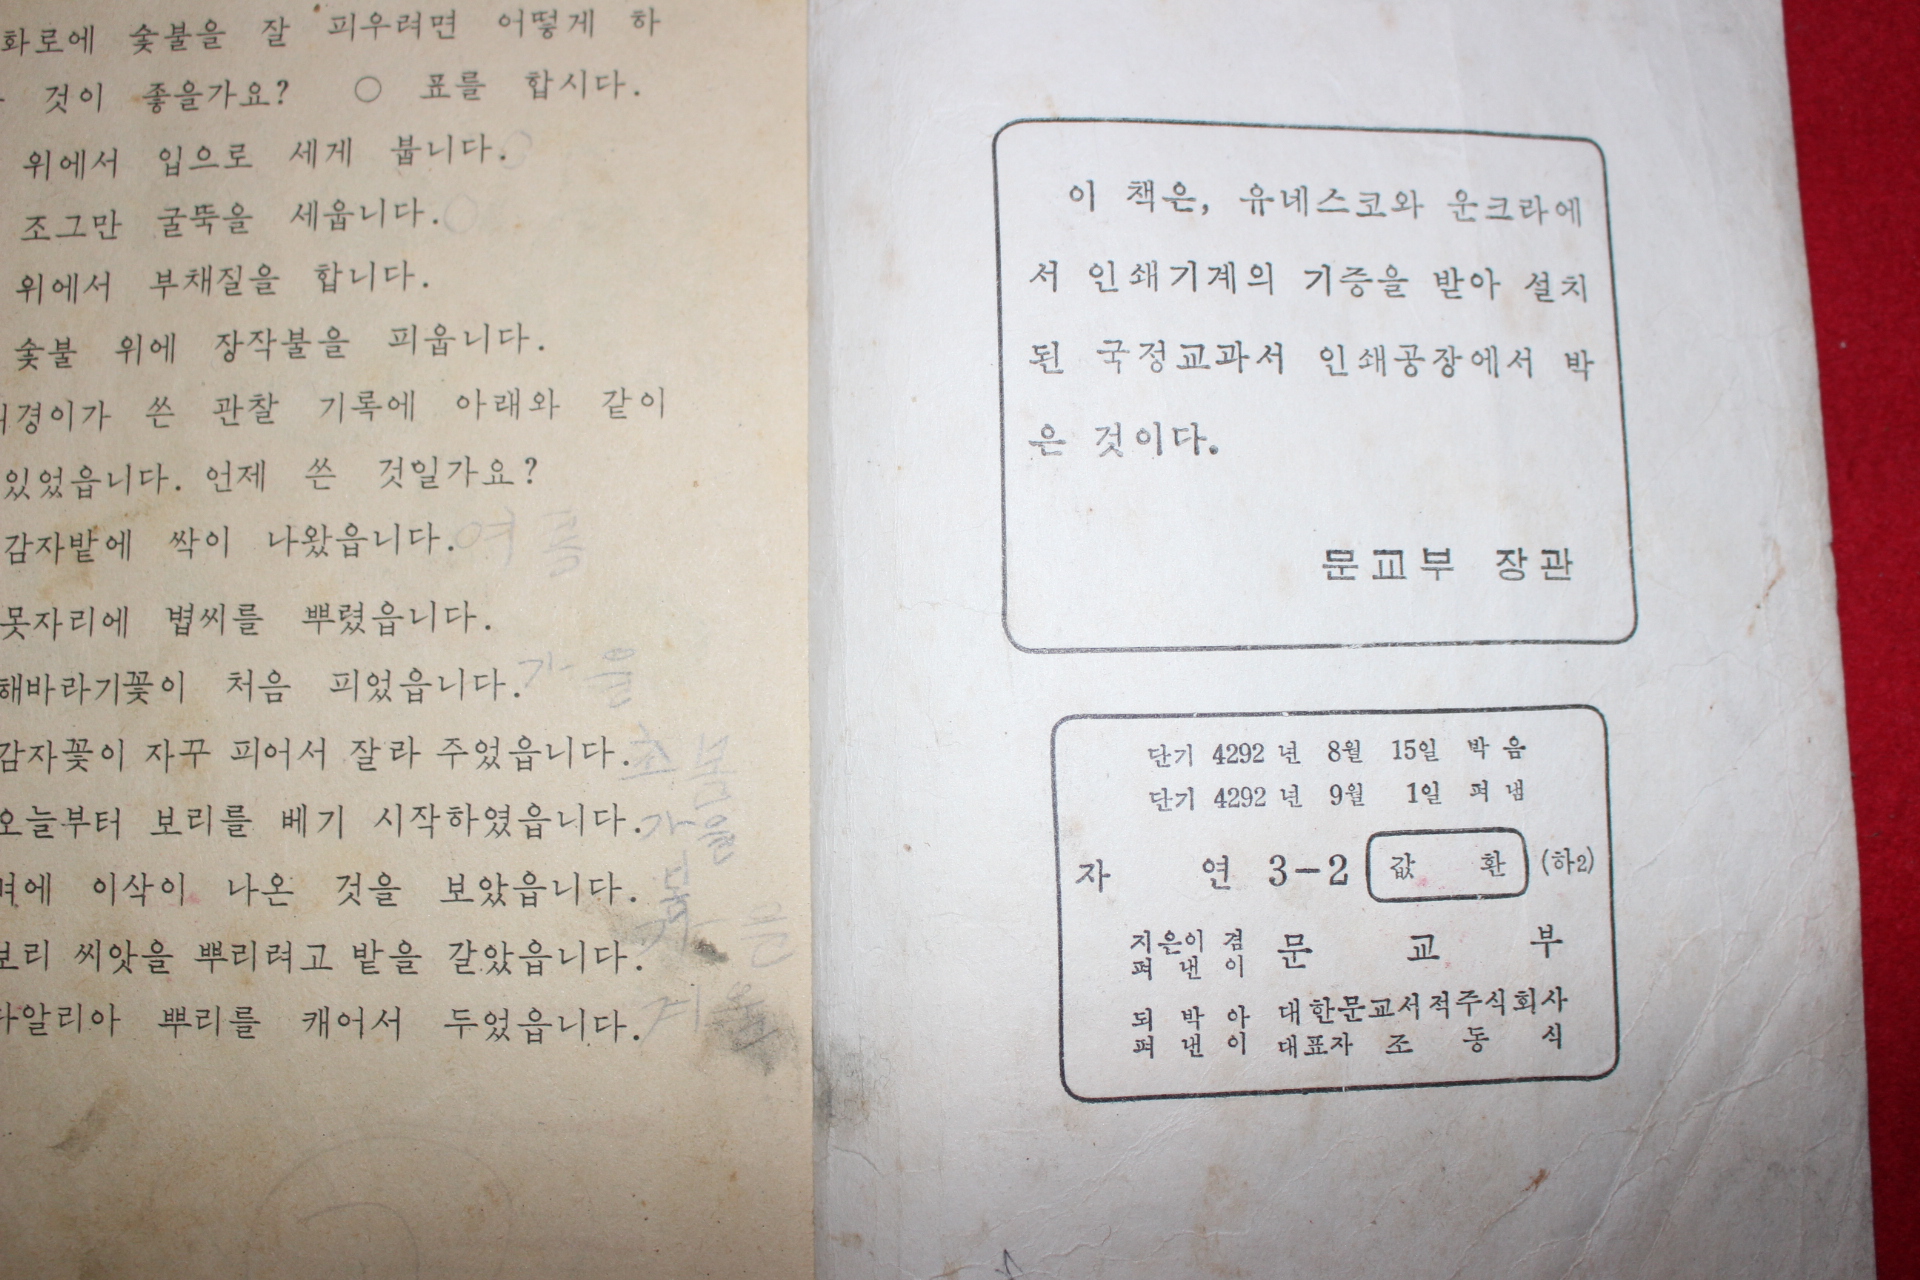 화로에 숯불을 잘 피우려면 어떻게 하
것이 좋을가요? ○ 표를 합시다.
위에서 입으로 세게 붑니다.
조그만 굴뚝을 세웁니다.
위에서 부채질을 합니다.
숯불 위에 장작불을 피웁니다.
쓴 관찰 기록에 아래와 같이
있었읍니다. 언제 쓴 것일가요?
감자밭에 싹이 나왔읍니다. 여름
못자리에 볍씨를 뿌렸읍니다.
해바라기꽃이 처음 피었읍니다. 가을
감자꽃이 자꾸 피어서 잘라 주었읍니다. 초봄
오늘부터 보리를 베기 시작하였읍니다. 가을
이삭이 나온 것을 보았읍니다. 봄
보리 씨앗을 뿌리려고 밭을 갈았읍니다.
다알리아 뿌리를 캐어서 두었읍니다. 겨울
이 책은, 유네스코와 운크라에
서 인쇄기계의 기증을 받아 설치
된 국정교과서 인쇄공장에서 박
은 것이다.
문교부 장관
단기 4292 년 8월 15일 박음
단기 4292 년 9월 1일 펴냄
자 연 3-2 값 환 (하2)
지은이 겸
펴 낸 이 문 교 부
되 박 아 대한문교서적주식회사
펴 낸 이 대표자 조 동 식